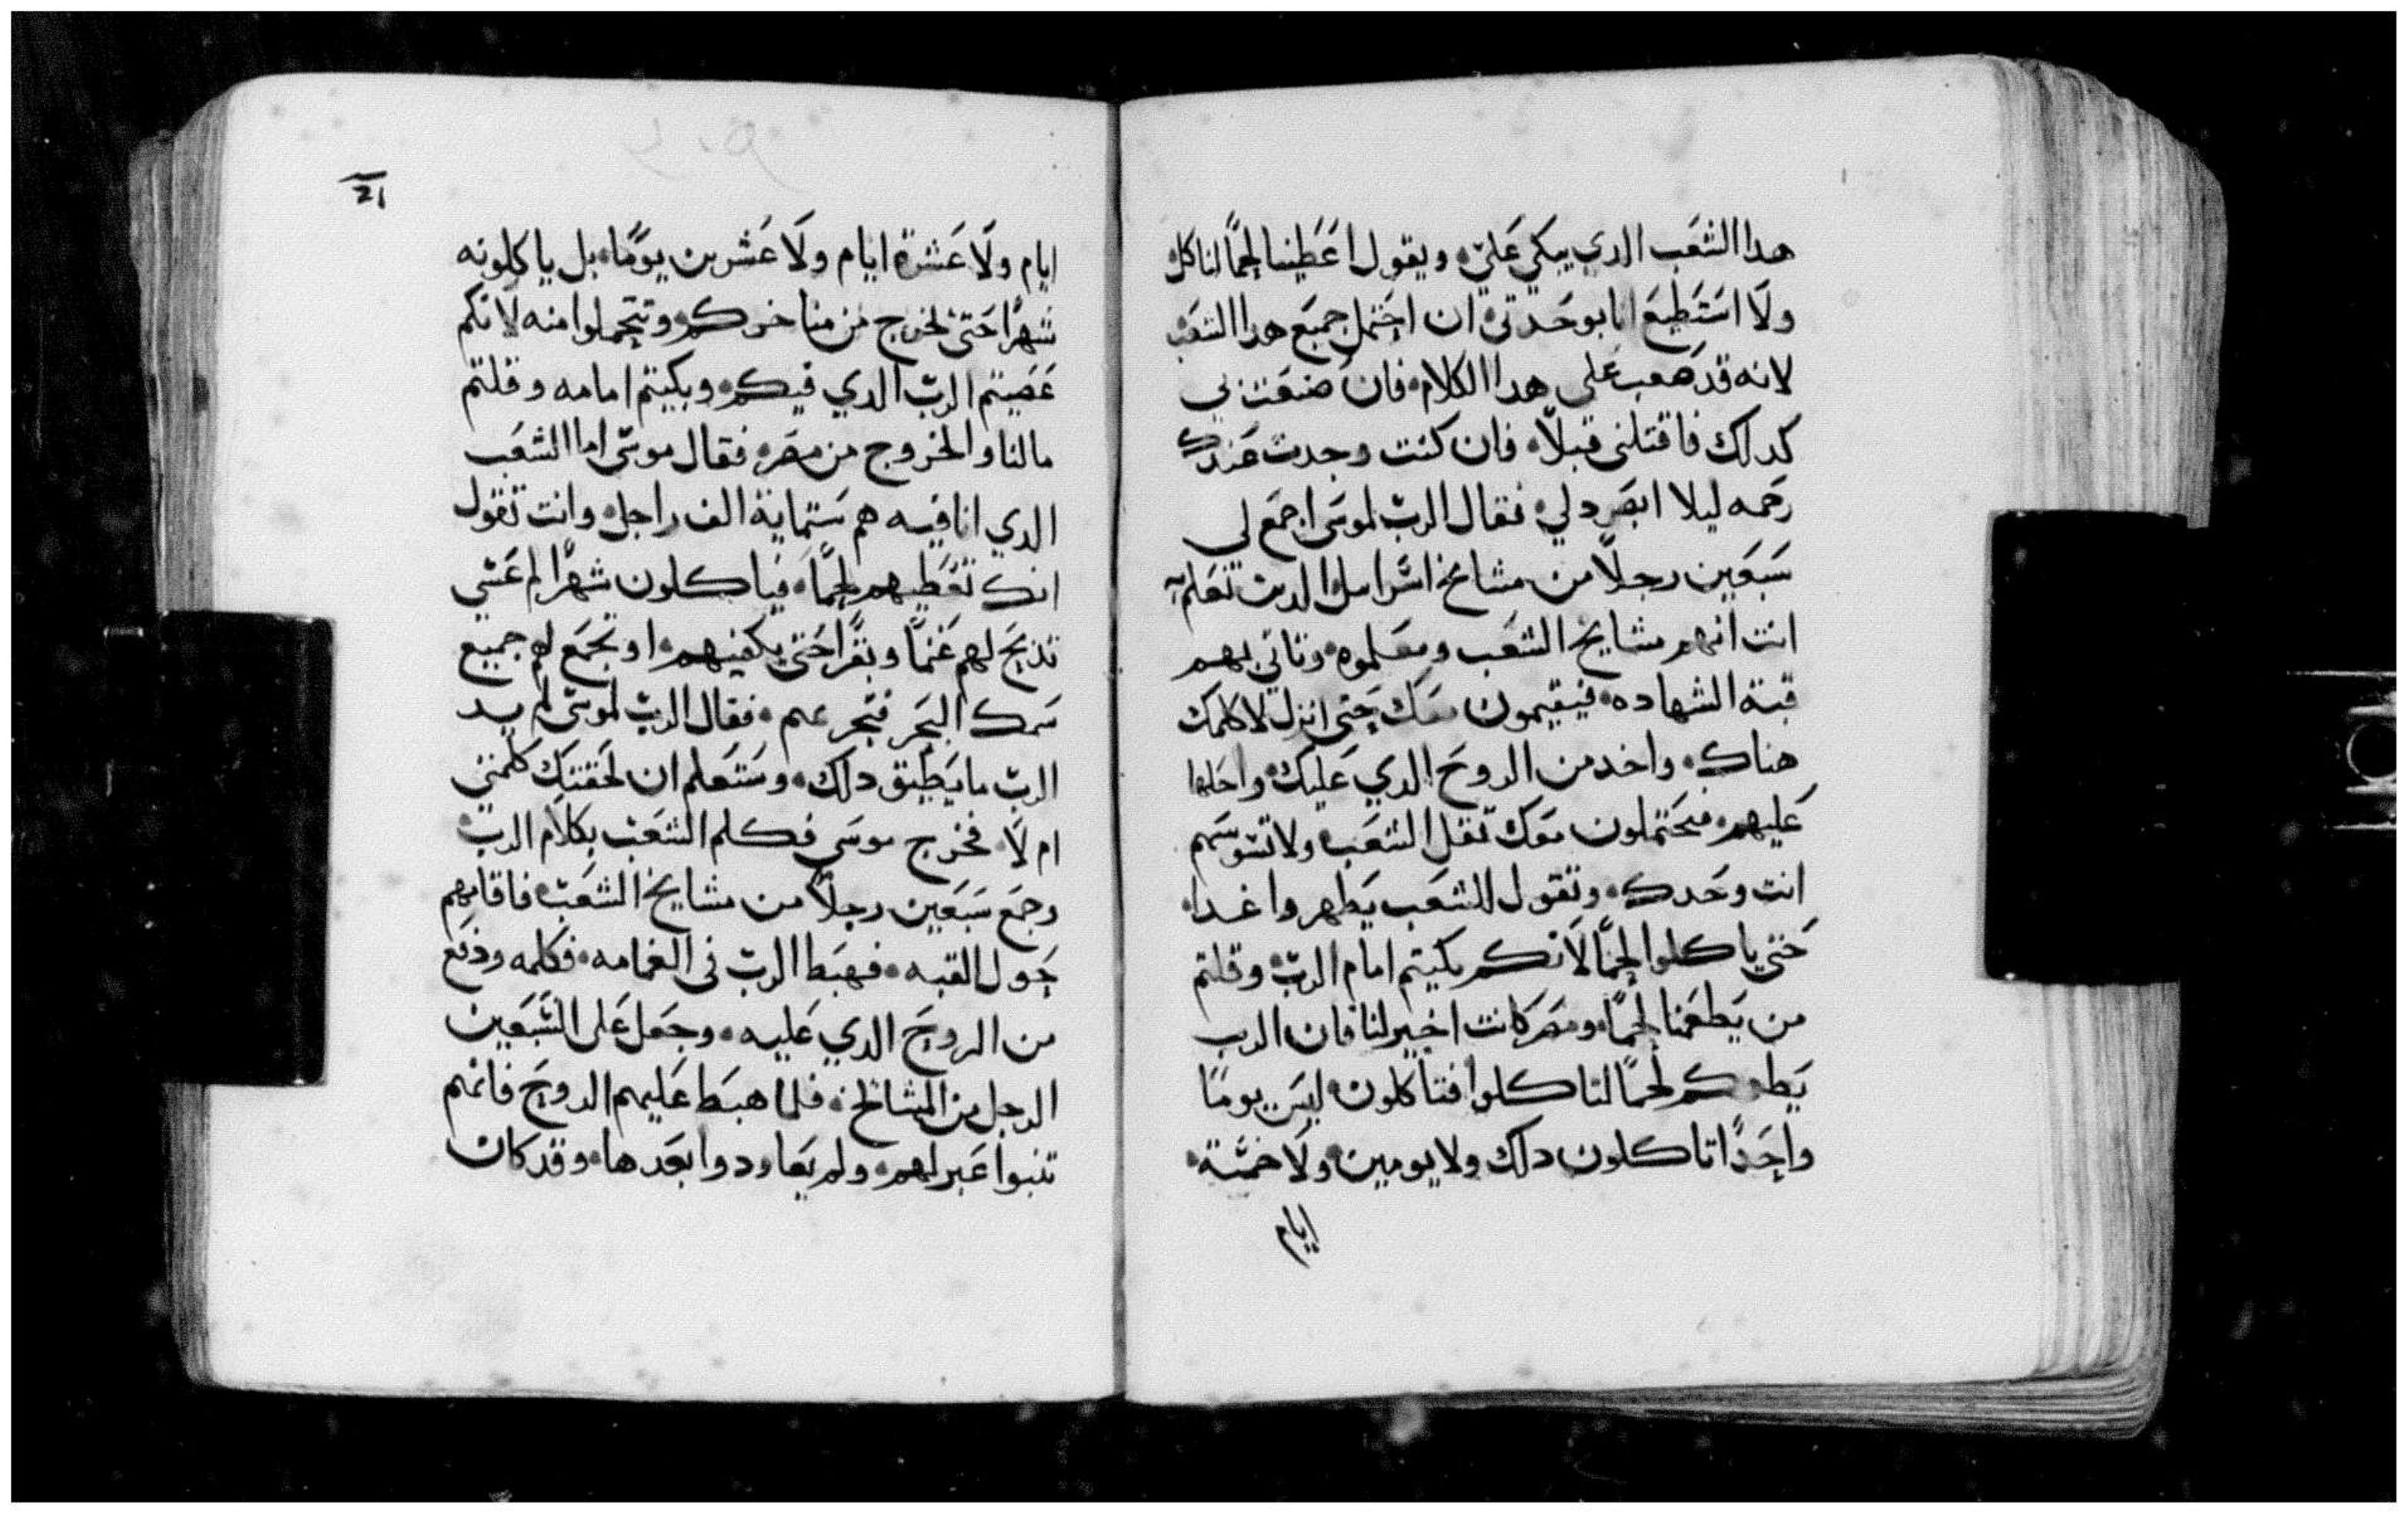 هدا الشعب الدي يبكي علي، ويقول اعطينا لحمًا لناكل
ولا استطيع انا بوحدتي ان احتمل جميع هدا الشعب
لانه قد صعب على هدا الكلام، فان صنعت بي
كدلك فاقتلني قبلاً، فان كنت وجدت عندك
رحمه ليلا ابصر دلي، فقال الرب لموسى اجمع لي
سبعين رجلاً من مشايخ اسراىيل الدين تعلم
انت انهم مشايخ الشعب ومعلموه، وتاتي بهم
قبة الشهاده، فيقيمون معك حتى انزل لاكلمك
هناك، واخد من الروح الدي عليك، واحلها
عليهم، فيحتملون معك تقل الشعب، ولا تسوسهم
انت وحدك، وتقول للشعب يطهروا غدا،
حتى ياكلوا لحمًا لانكم بكيتم امام الرب، وقلتم
من يطعمنا لحمًا، ومصر كانت اخير لنا فان الرب
يطعمكم لحمًا لتاكلوا فتاكلون، ليس يومًا
واحدًا تاكلون دلك ولا يومين، ولا خمسة،
ايام
21
ايام ولا عشرة ايام ولا عشرين يومًا، بل ياكلونه
شهرًا حتى تخرج من مناخركم، وتتجملوا منه لانكم
عصيتم الرب الدي فيكم، وبكيتم امامه وقلتم
مالنا والخروج من مصر، فقال موسى اما الشعب
الدي انا فيه هم ستماية الف راجل، وانت تقول
انك تعطيهم لحمًا، فياكلون شهرًا لم عسى
تذبح لهم غنمًا وبقرًا حتى يكفيهم، او تجمع لهم جميع
سمك البحر فتجرعهم، فقال الرب لموسى لم يد
الرب ما يطيق دلك، وستعلم ان لحقتك كلمتي
ام لا، فخرج موسى فكلم الشعب بكلام الرب،
وجمع سبعين رجلاً من مشايخ الشعب، فاقامهم
حول القبه، فهبط الرب في الغمامه، فكلمه ودفع
من الروح الدي عليه، وجعل على السبعين
الرجل من المشايخ، فلما هبط عليهم الروح فانهم
تنبوا عبرلهم، ولم يعاودوا بعدها، وقد كان